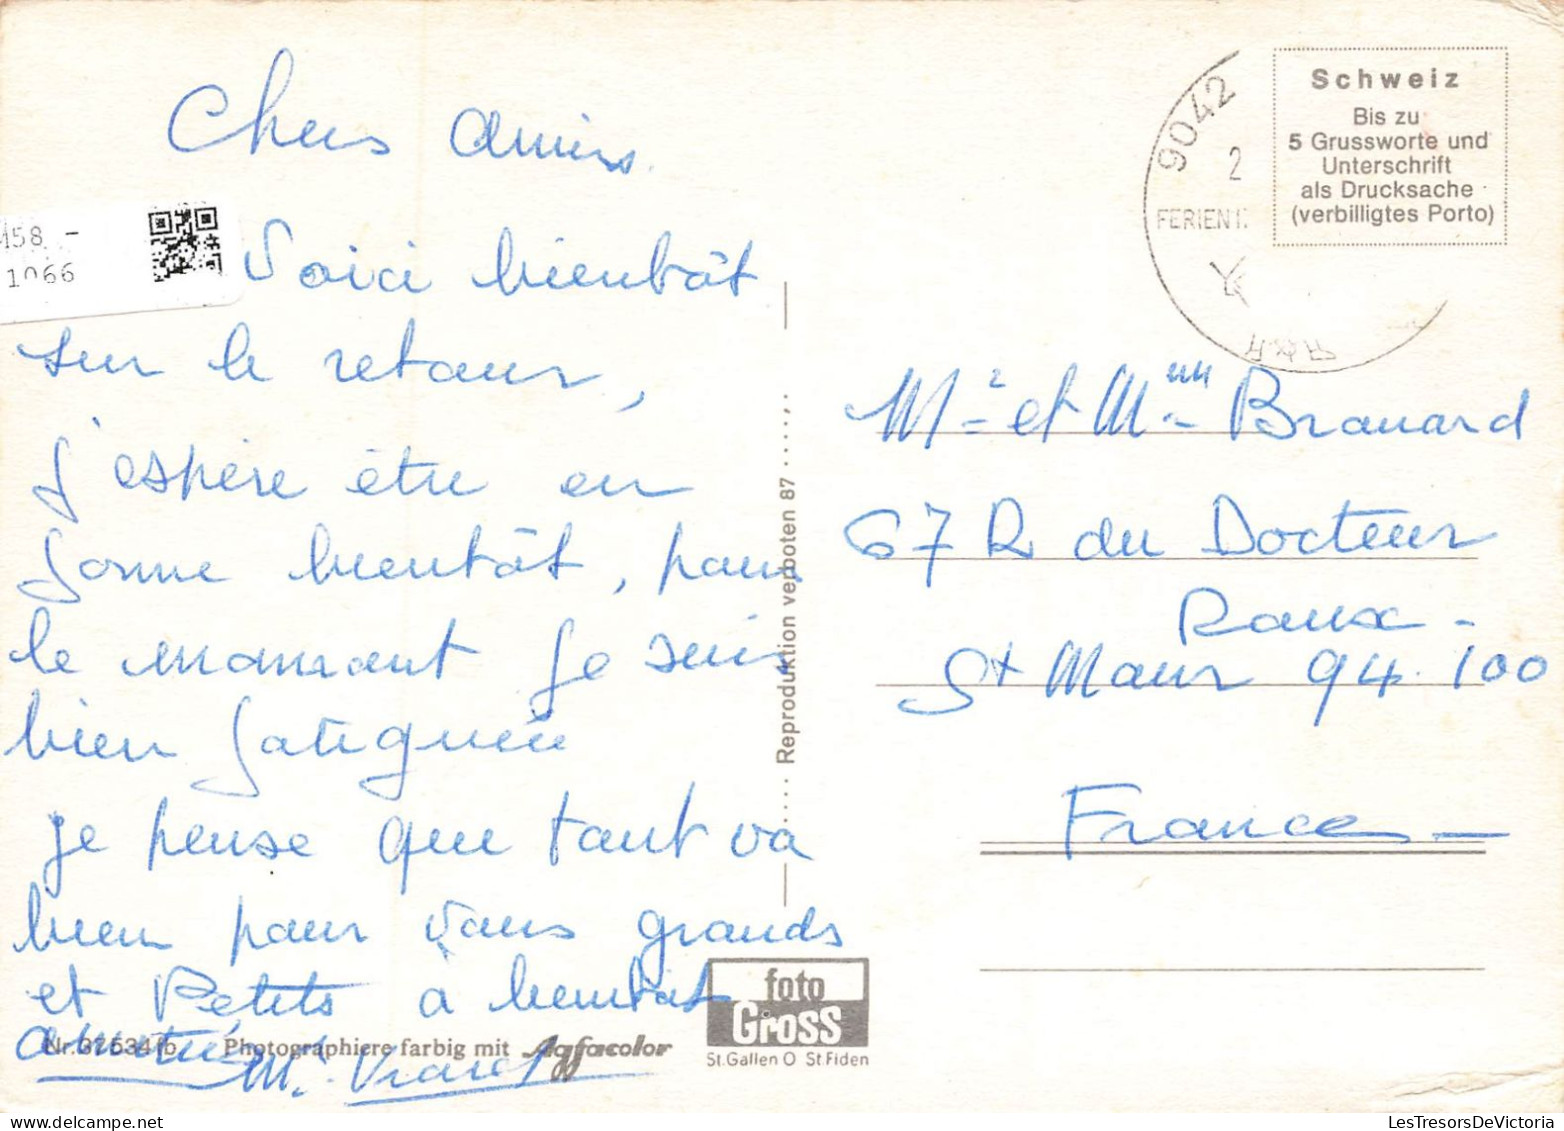 Chers amis.
Voici bientôt
sur le retour,
j'espère être en
forme bientôt, pour
le moment je suis
bien fatiguée
je pense que tout va
bien pour vous grands
et Petits a bientôt
amitiés
M.
M58 -
1066
9042
2
FERIEN
Schweiz
Bis zu
5 Grussworte und
Unterschrift
als Drucksache
(verbilligtes Porto)
Mr et Mme Brouard
67 R du Docteur
Roux -
St Maur 94.100
France -
Reproduktion verboten 87
foto
Gross
St.Gallen O St.Fiden
Nr. 37534 fb Photographiere farbig mit Agfacolor
LesTresorsDeVictoria